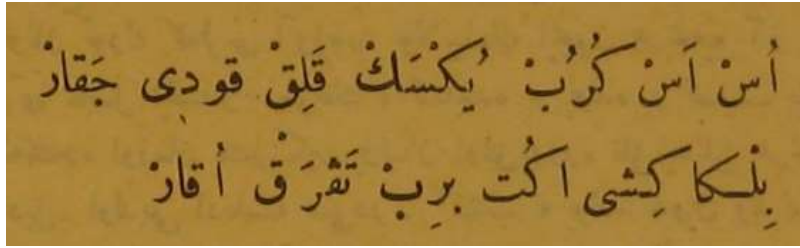 اُسْ اَسْ كُرُبْ يُكْسَكْ قَلِقْ قودى جَقارْ
بِلْكا كِشى اكُت بِرِبْ تَقْرَقْ اُقارْ